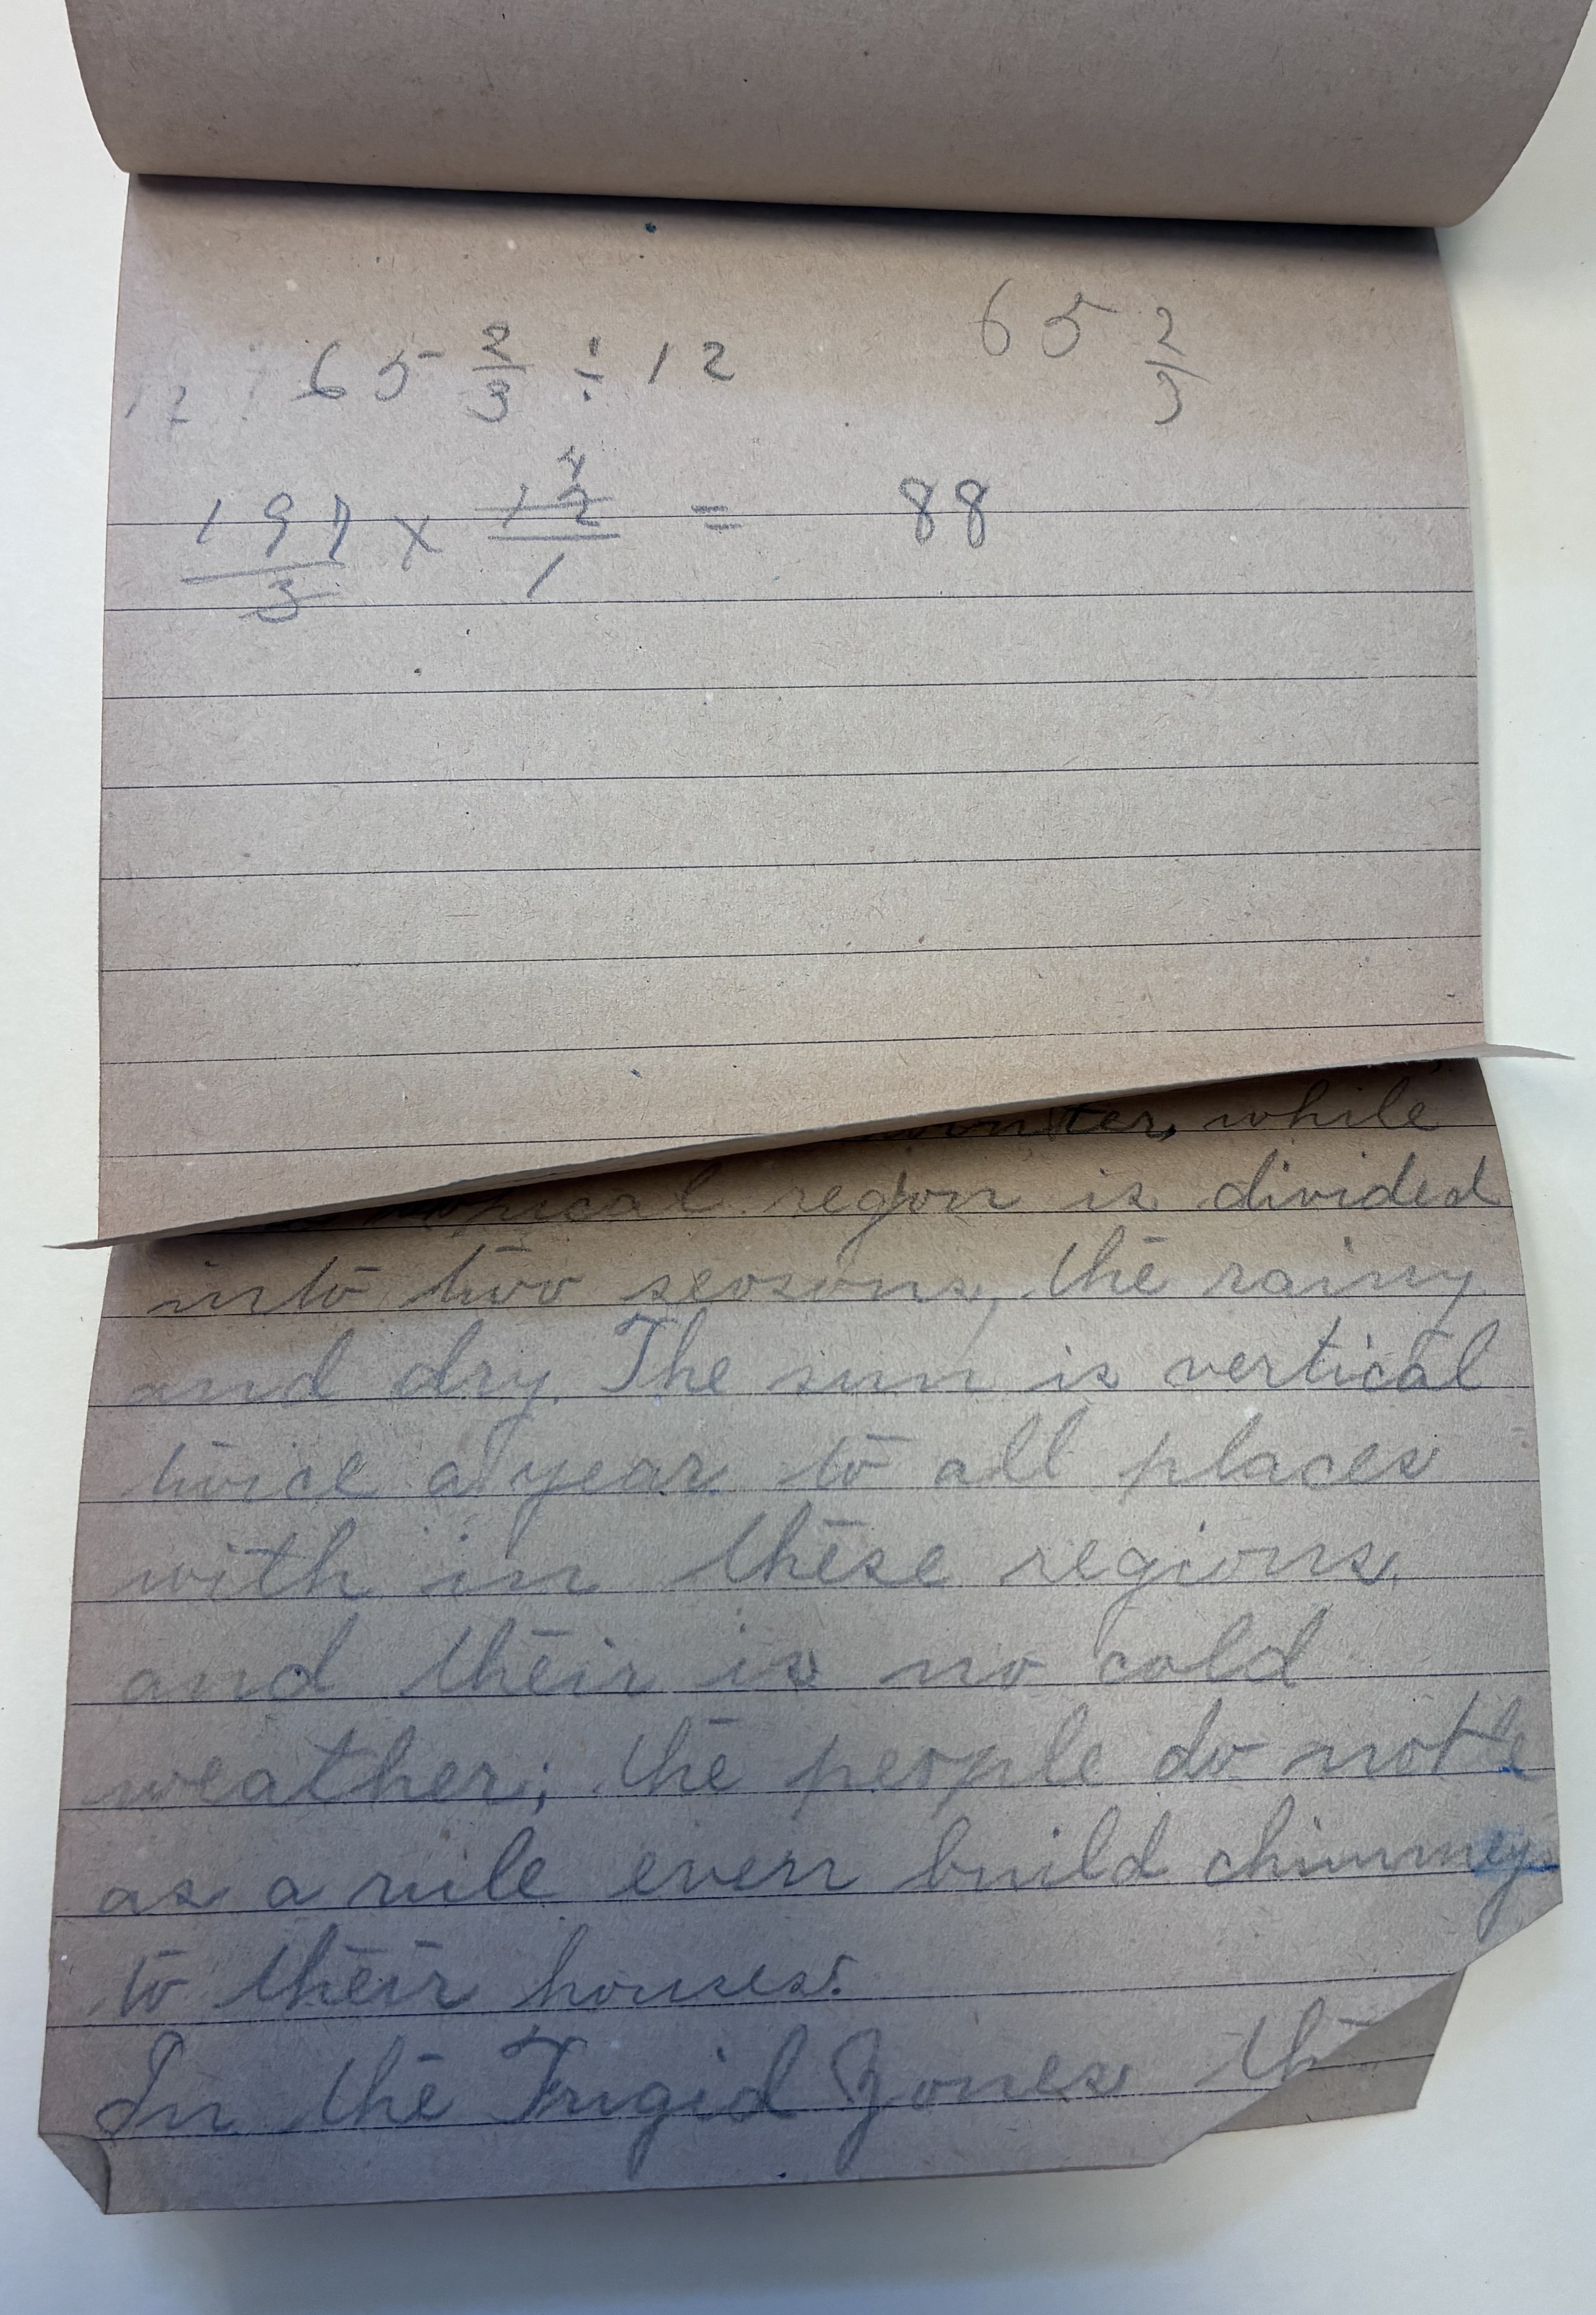 65 2/3 ÷ 12
65 2/3
197/3 × 12/1 = 88
4
winter, while
tropical region is divided
into two seosons, the rainy
and dry. The sun is vertical
twice a year to all places
with in these regions,
and their is no cold
weather; the people do not
as a rule even build chimney
to their houses.
In the Frigid Zones th